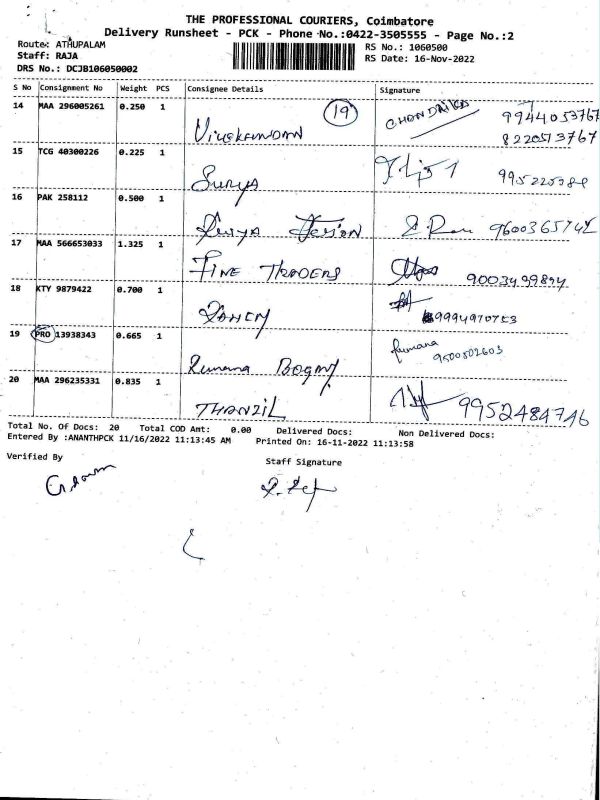 THE PROFESSIONAL COURIERS, Coimbatore
Delivery Runsheet - PCK - Phone No.:0422-3505555 - Page No.:2
Route: ATHUPALAM
RS No.: 1060500
Staff: RAJA
RS Date: 16-Nov-2022
DRS No.: DCJB106050002
S No Consignment No Weight PCS Consignee Details Signature
14 MAA 296005261 0.250 1 19 CHANDRIKA 9944053767
8220513767
15 TCG 40300226 0.225 1
SURYA
16 PAK 258112 0.500 1 9600365742
17 MAA 566653033 1.325 1
FINE TRADERS 9003499894
18 KTY 9879422 0.700 1
9994970753
19 PRO 13938343 0.665 1 Rumana
9500502603
Rumana
20 MAA 296235331 0.835 1 9952484746
THANZIL
Total No. Of Docs: 20 Total COD Amt: 0.00 Delivered Docs: Non Delivered Docs:
Entered By :ANANTHPCK 11/16/2022 11:13:45 AM Printed On: 16-11-2022 11:13:58
Verified By
Staff Signature